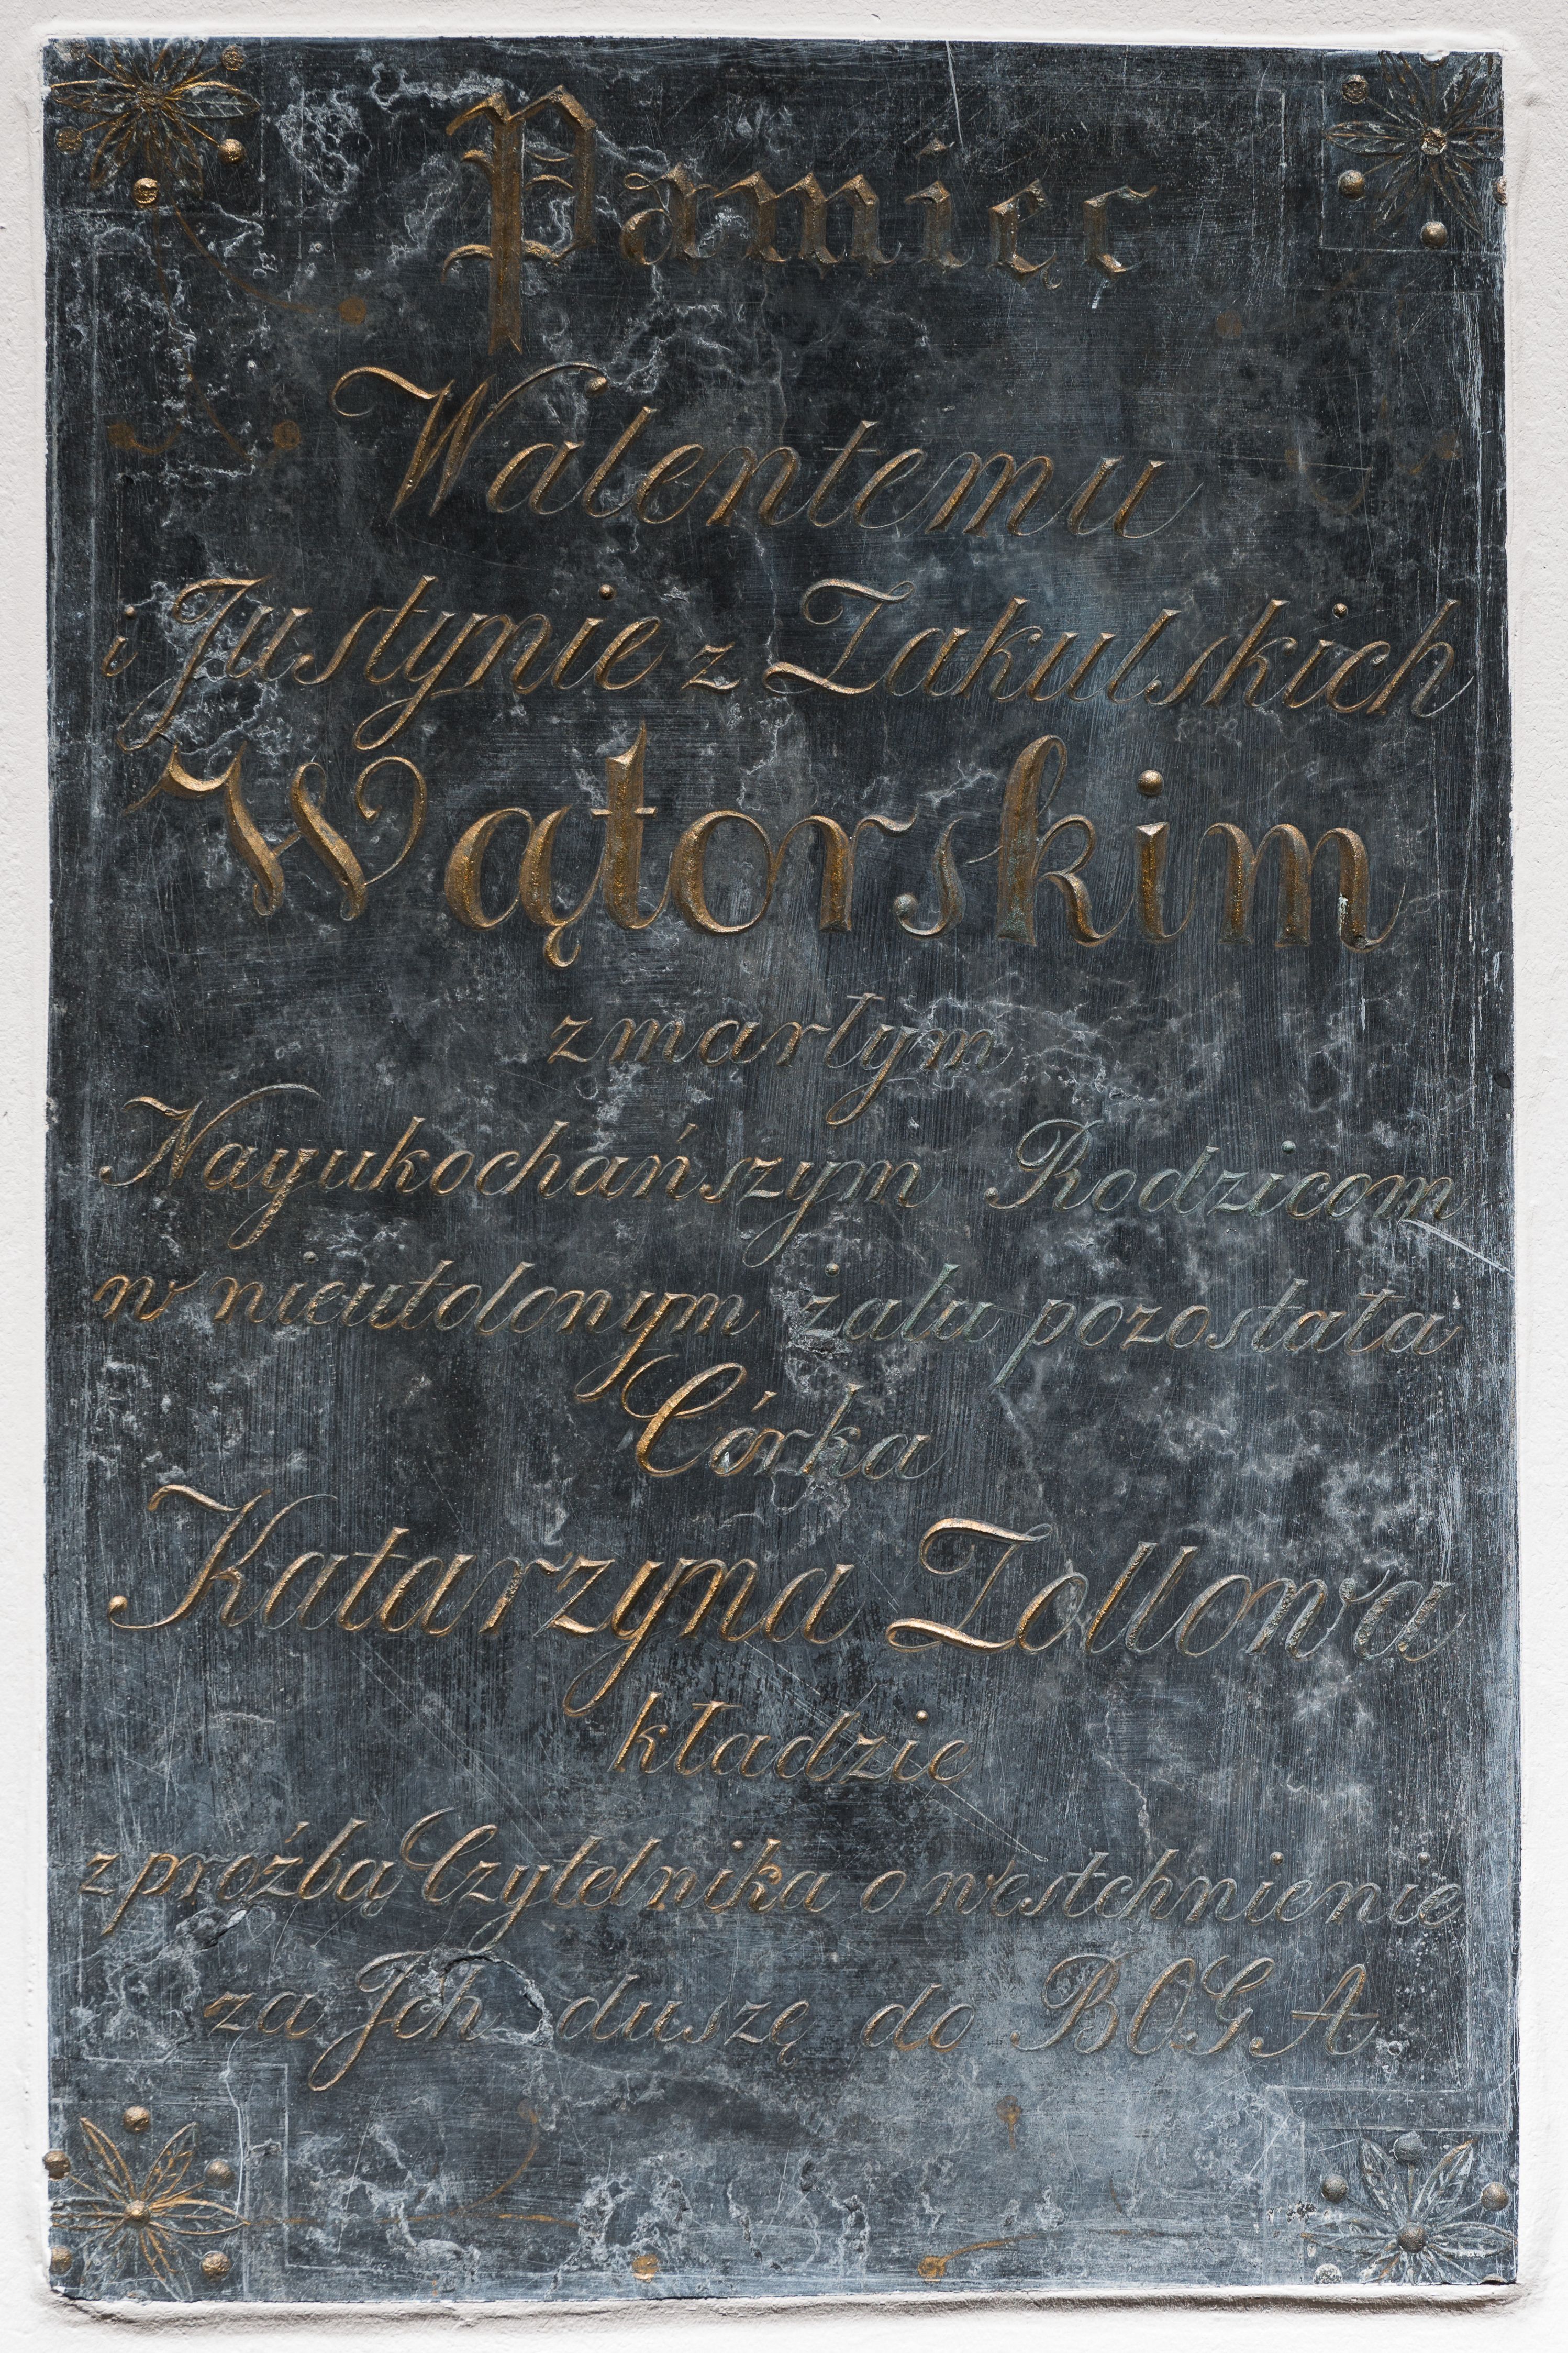 Pamięc
Walentemu
i Justynie z Zakulskich
Wątorskim
zmarłym
Nayukochańszym Rodzicom
w nieutolonym żalu pozostała
Córka
Katarzyna Zollowa
kładzie
z proźbą Czytelnika o westchnienie
za Jch duszę do BOGA